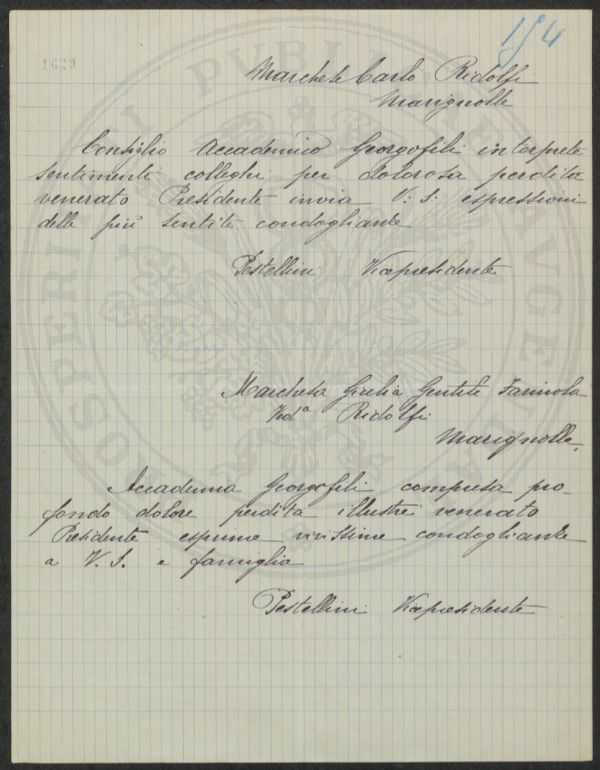 154
1629
Marchese Carlo Ridolfi
Marignolle
Consiglio Accademico Georgofili interprete
sentimenti colleghi per dolorosa perdita
venerato Presidente invia V. S. espressioni
delle più sentite condoglianze
Pestellini Vicepresidente
Marchesa Giulia Gentile Farinola
Ved.ª Ridolfi
Marignolle.
Accademia Georgofili compresa pro-
fondo dolore perdita illustre venerato
Presidente esprime vivissime condoglianze
a V. S. e famiglia
Pestellini Vicepresidente